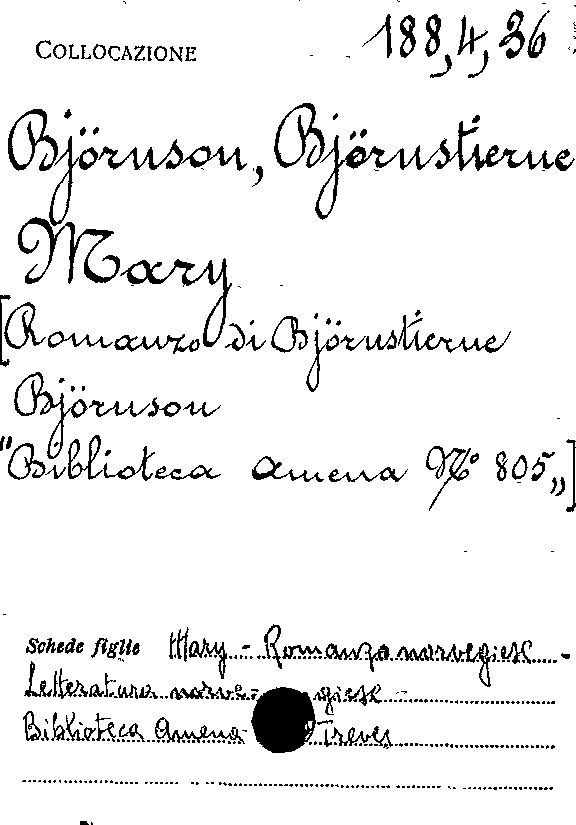 COLLOCAZIONE 188,4,36
Björnson, Björnstierne
Mary
[Romanzo di Björnstierne
Björnson
"Biblioteca amena No 805„]
Schede figlie Mary - Romanzo norvegiese -
Letteratura norve= giese -
Biblioteca Amena Treves